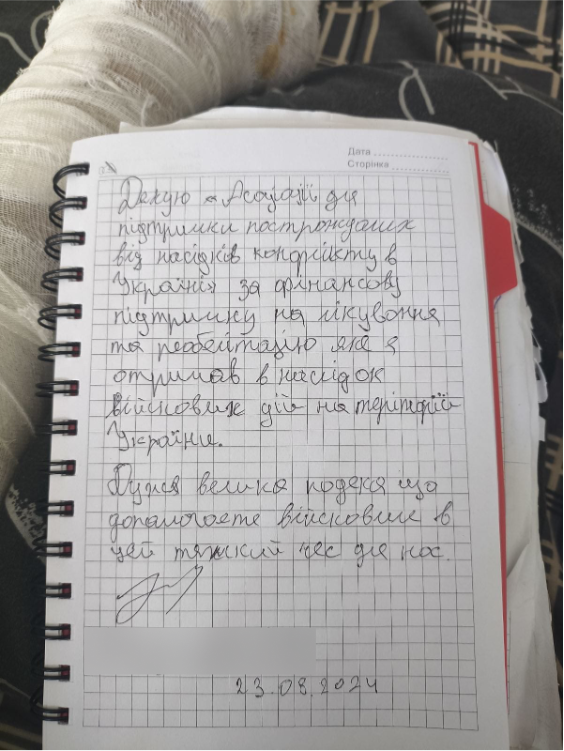 Дата
Сторінка
Дякую Асоціації для
підтримки постраждалих
від наслідків конфлікту в
Україні за фінансову
підтримку на лікування
та реобелітацію яке я
отримав в наслідок
військових дій на теріторії
України.
Дужа велика подяка що
допомогаете військовим в
цей тяжкий час для нас.
23.08.2024